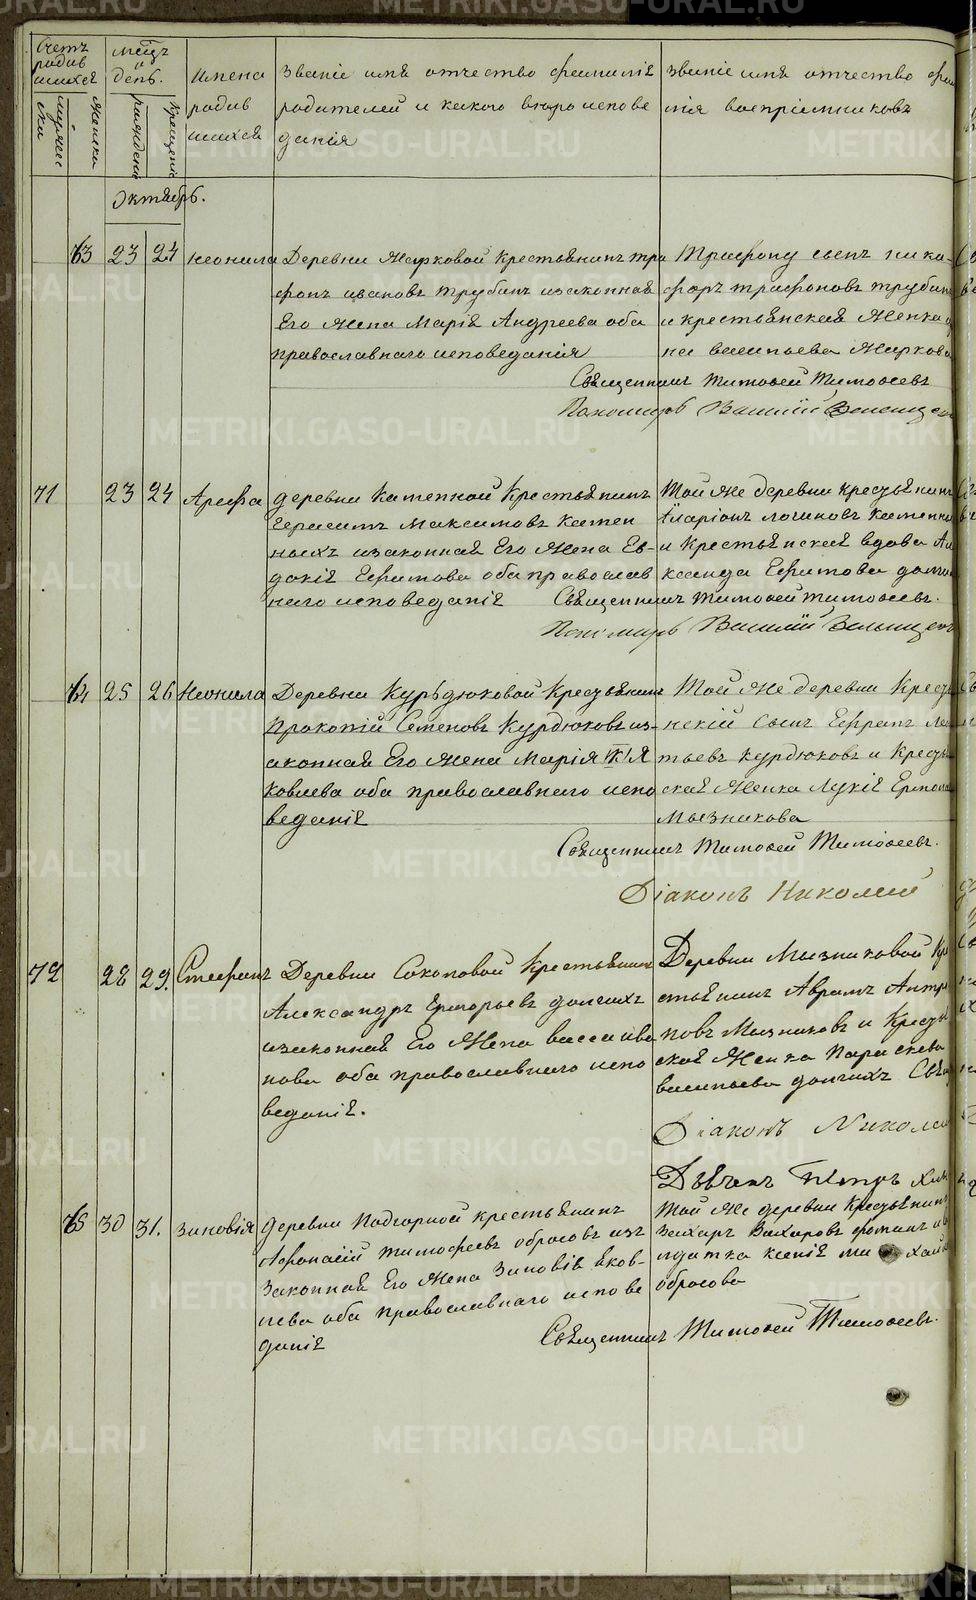 Счетъ родившихсѣ
мужеска
женска
мѣсць и день.
рожденіе
крещеніе
Имена родившихсѣ
Званіе имѣ отчество фамиліѣ
родителей и какого вѣроиспове
даніѧ
Званіе имѣ отчество фами
ліѧ воспріемниковъ
Октѣбрь.
63 23 24 неонила
Деревни Жарковой крестьѣнинъ три
фонъ ивановъ трубинъ изаконнаѣ
Его Жена Маріѣ Андреева оба
православнаго исповеданіѧ
Трифону сынъ ники
форъ трифоновъ трубин
и крестьѣнскаѣ Женка
на васильева Жаркова
Свѣщенникъ Тимоѳей Тимоѳеевъ
Пономарь Василій
71 23 24 Арефа
деревни Каменной Крестьѣнинъ
Герасимъ Максимовъ Камен
ныхъ изаконнаѣ Его Жена Ев-
докіѣ Ефимова оба православ
наго исповеданіѣ
Той же деревни крестьѣнинъ
Иларіонъ логиновъ каменны
и Крестьѣнскаѣ вдова Ал
ксанда Ефимова
Свѣщенникъ Тимоѳей Тимоѳеевъ.
Пономарь Василій
64 25 26 Неонила
Деревни Курьдюковой Крестьѣнинъ
Прокопій Семеновъ Курдюковъ из-
аконнаѣ Его Жена Маріѧ Я
ковлева оба православнаго испо
веданіѣ
Той же деревни Кресть
нскій сынъ Ефрапъ Ле
тьевъ курдюковъ и Кресть
скаѣ Женка Лукіѣ Ермола
Мызникова
Свѣщенникъ Тимоѳей Тимоѳеевъ.
Діаконъ Николай
72 28 29. Стефанъ
Деревни Соколовой Крестьѣнинъ
Александръ Егорьевъ долгихъ
изаконнаѣ Его Жена васса ива
нова оба православнаго испо
веданіѣ.
Деревни Мызниковой Кре
стьѣнинъ Аврамъ Антро
повъ Мызниковъ и Кресть
скаѣ Женка Параскева
васильева долгихъ Свѣщ
Діаконъ Никола
Дьѣчекъ Петръ
65 30 31. Зиновіѧ
Деревни Подгорной крестьѣнинъ
Афонасій тимофеевъ обросовъ изъ
Законнаѣ Его Жена Зиновіѣ ѣков-
лева оба православнаго испове
даніѣ
Той Же деревни Крестьѣнинъ
Захаръ Захаровъ фоминъ и
лдатка ксеніѣ ми хай
обросова
Свѣщенникъ Тимоѳей Тимоѳеевъ.
METRIKI.GASO-URAL.RU